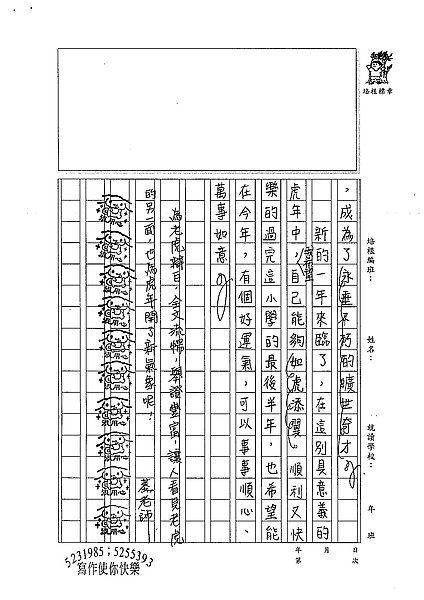 培根標章
培根編班：　姓名：　就讀學校：　年　班
年　月　日
第　次
，成為了永垂不朽的曠世奇才。
新的一年來臨了，在這別具意義的
虎年中，希望自己能夠如虎添翼。順利又快
樂的過完這小學的最後半年，也希望能
在今年，有個好運氣，可以事事順心、
萬事如意。
為老虎辯白，全文流暢，舉證豐富，讓人看見老虎
的另一面，也為虎年開了新氣象呢！
蔡老師
5231985；5255393
寫作使你快樂